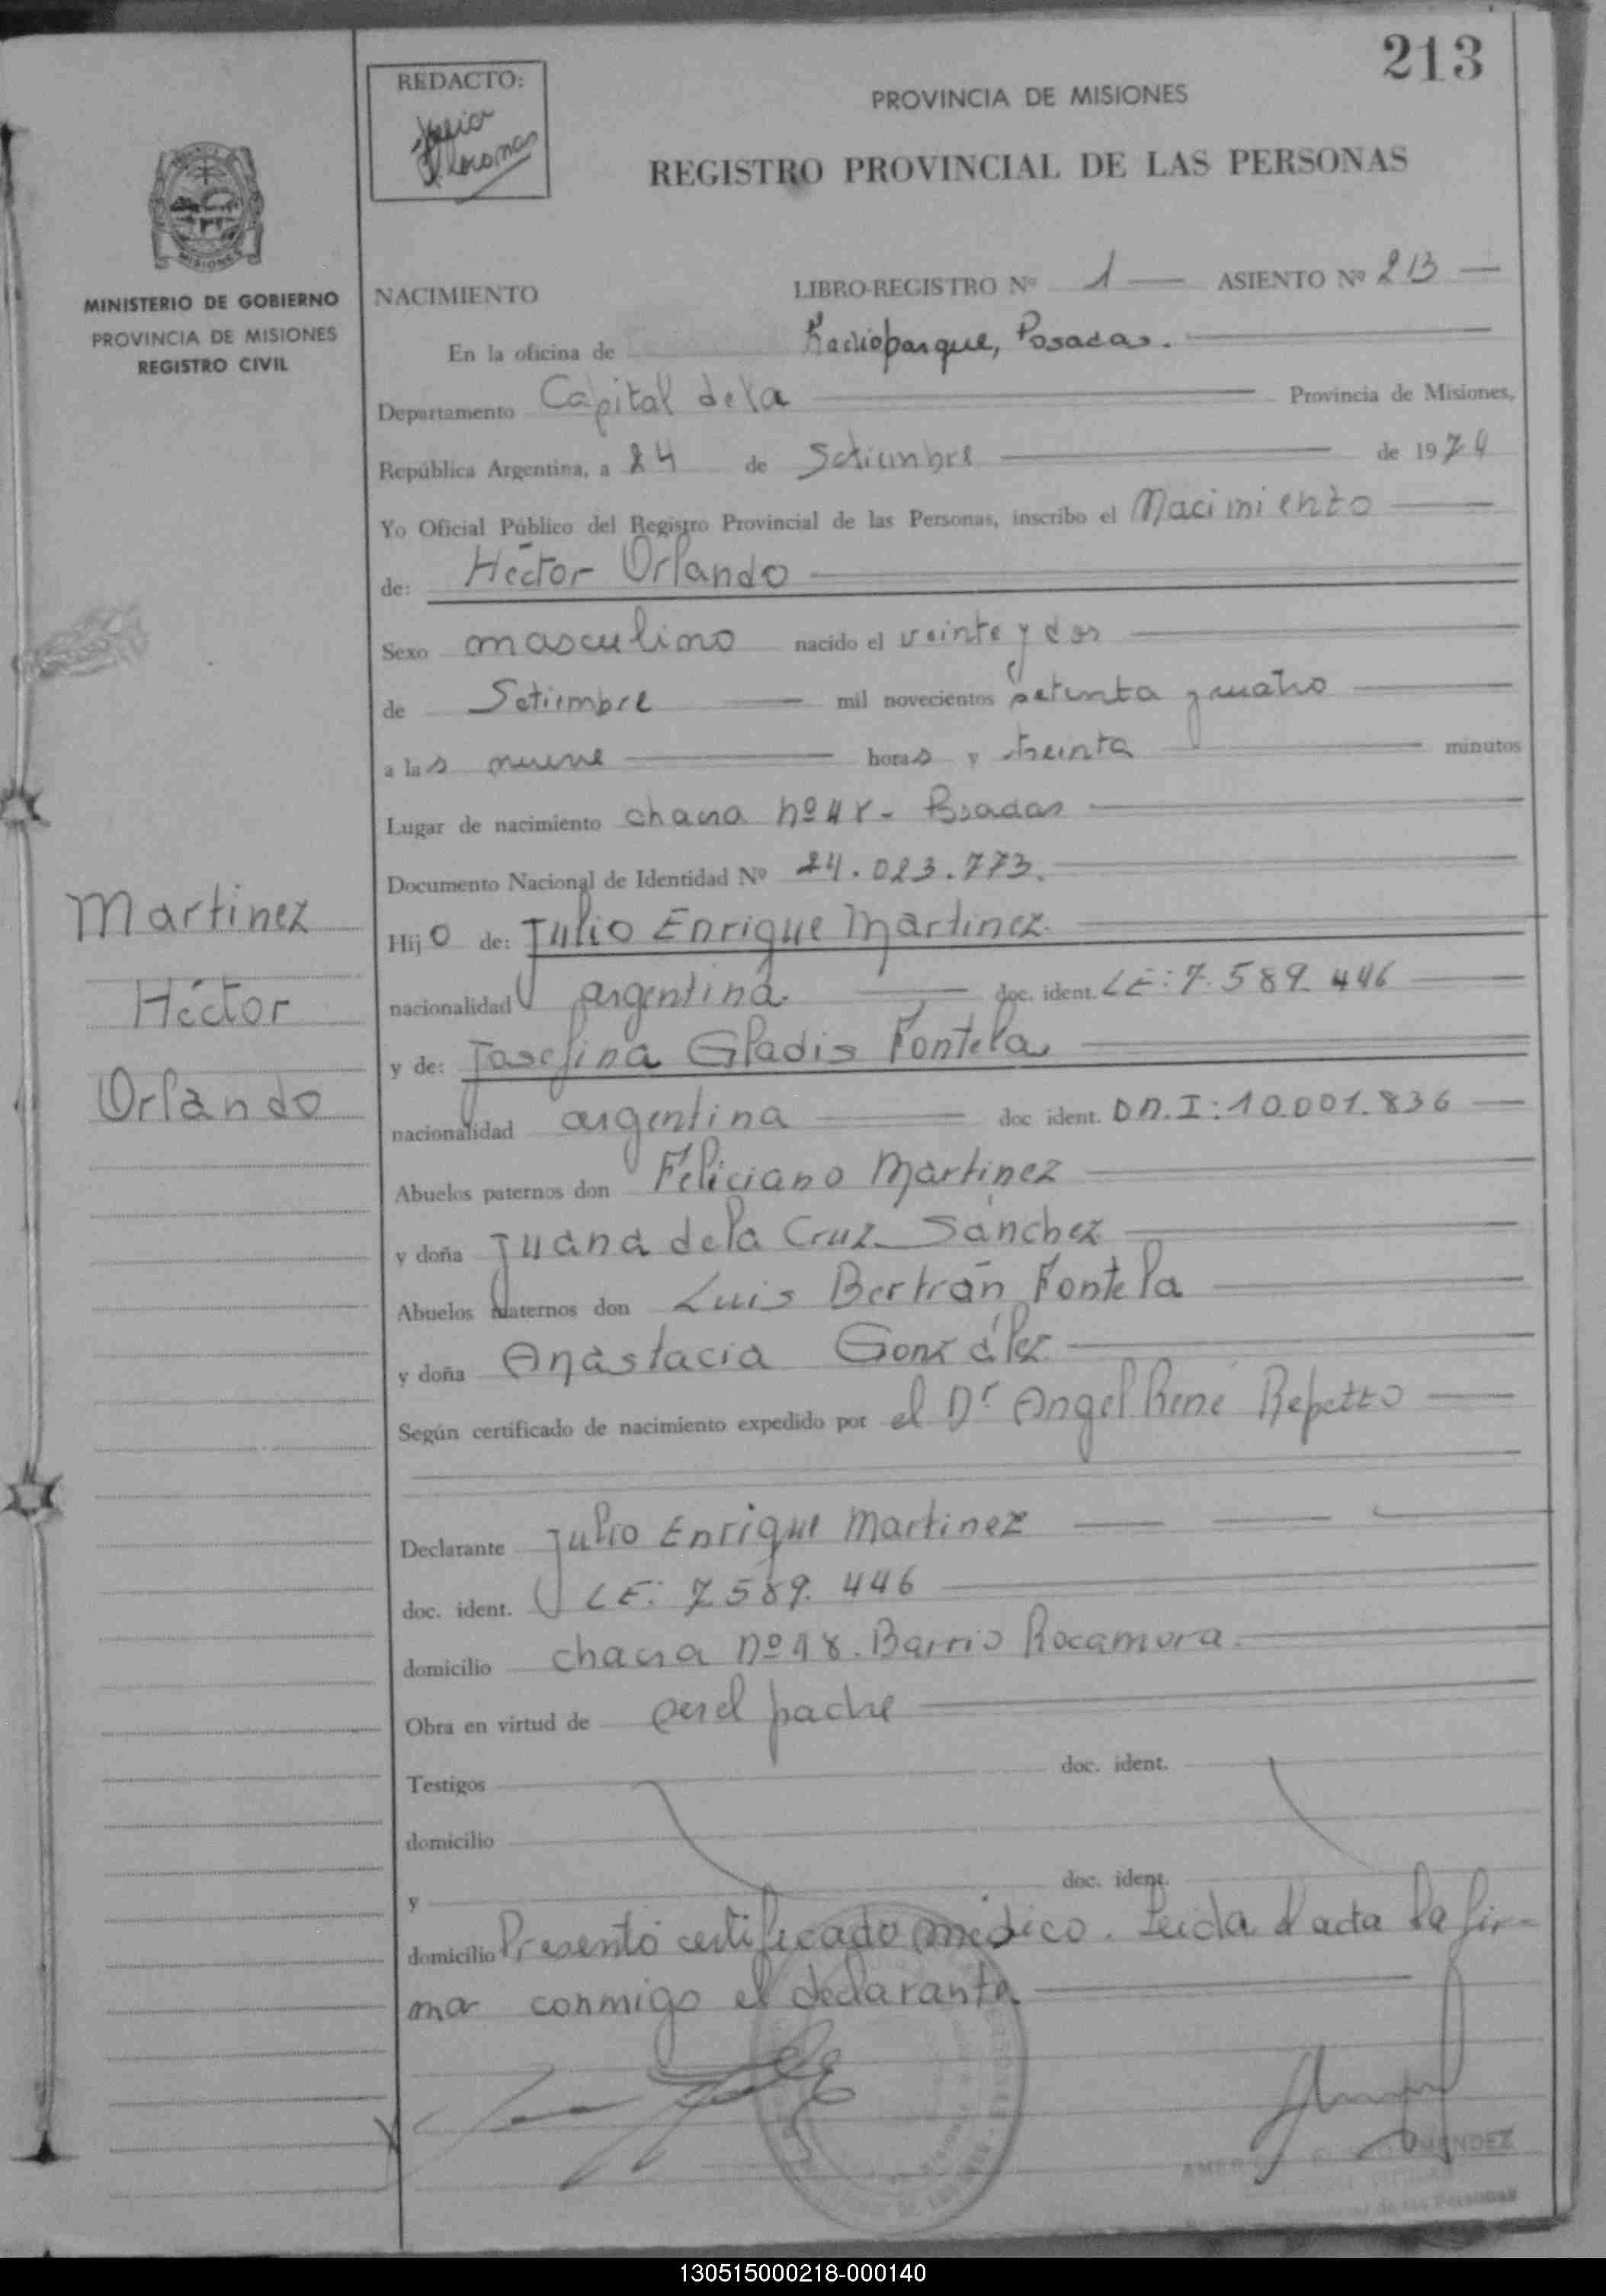 213
REDACTO:
PROVINCIA DE MISIONES
REGISTRO PROVINCIAL DE LAS PERSONAS
MISIONES
MINISTERIO DE GOBIERNO
PROVINCIA DE MISIONES
REGISTRO CIVIL
NACIMIENTO LIBRO-REGISTRO Nº 1 — ASIENTO Nº 213 —
En la oficina de Radioparque, Posadas.
Departamento Capital de la Provincia de Misiones,
República Argentina, a 24 de Setiembre de 1974
Yo Oficial Público del Registro Provincial de las Personas, inscribo el Nacimiento
de: Héctor Orlando
Sexo masculino nacido el veinte y dos
de Setiembre mil novecientos setenta y cuatro
a las nueve horas y treinta minutos
Lugar de nacimiento chacra nº 48 - Posadas
Documento Nacional de Identidad Nº 24.023.773.
Martinez
Héctor
Orlando
Hijo de: Julio Enrique Martinez
nacionalidad argentina doc. ident. LE: 7.589.446
y de: Josefina Gladis Fontela
nacionalidad argentina doc ident. D.N.I: 10.001.836
Abuelos paternos don Feliciano Martinez
y doña Juana de la Cruz Sánchez
Abuelos maternos don Luis Bertrán Fontela
y doña Anastacia González
Según certificado de nacimiento expedido por el Dr Angel René Repetto
Declarante Julio Enrique Martinez
doc. ident. LE: 7.589.446
domicilio chacra nº 48. Barrio Rocamora.
Obra en virtud de ser el padre
Testigos doc. ident.
domicilio
y doc. ident.
domicilio Presentó certificado médico. Leida el acta la fir-
ma conmigo el declarante
de las Personas
130515000218-000140